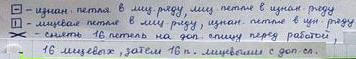 - изнан. петля в лиц. ряду, лиц. петля в изнан. ряду
- лицевая петля в лиц. ряду, изнан. петля в изн. ряду
- снять 16 петель на доп. спицу перед работой,
16 лицевых, затем 16 п. лицевыми с доп. сп.